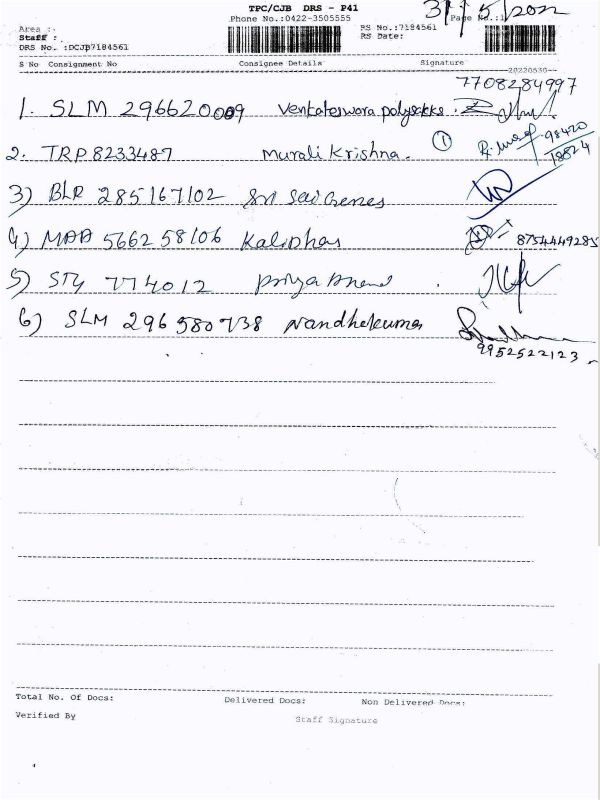 TPC/CJB DRS - P41
Phone No.:0422-3505555
31/5/2022
Page No.:1
Area :-
Staff :
DRS No. :DCJB7184561
RS No.:7184561
RS Date:
S No Consignment No Consignee Details Signature
20220530
7708284997
1. SLM 296620009 Venkateswara polysacks.
2. TRP 8233487 Murali Krishna. 1 98420
18824
3) BLR 285167102 Sri Sai Genes
4) MAA 566258106 Kalidhas 8754449285
5) STY 774012 priya Anand .
6) SLM 296580738 Nandhakumar
9952522123
Total No. Of Docs: Delivered Docs: Non Delivered Docs:
Verified By Staff Signature